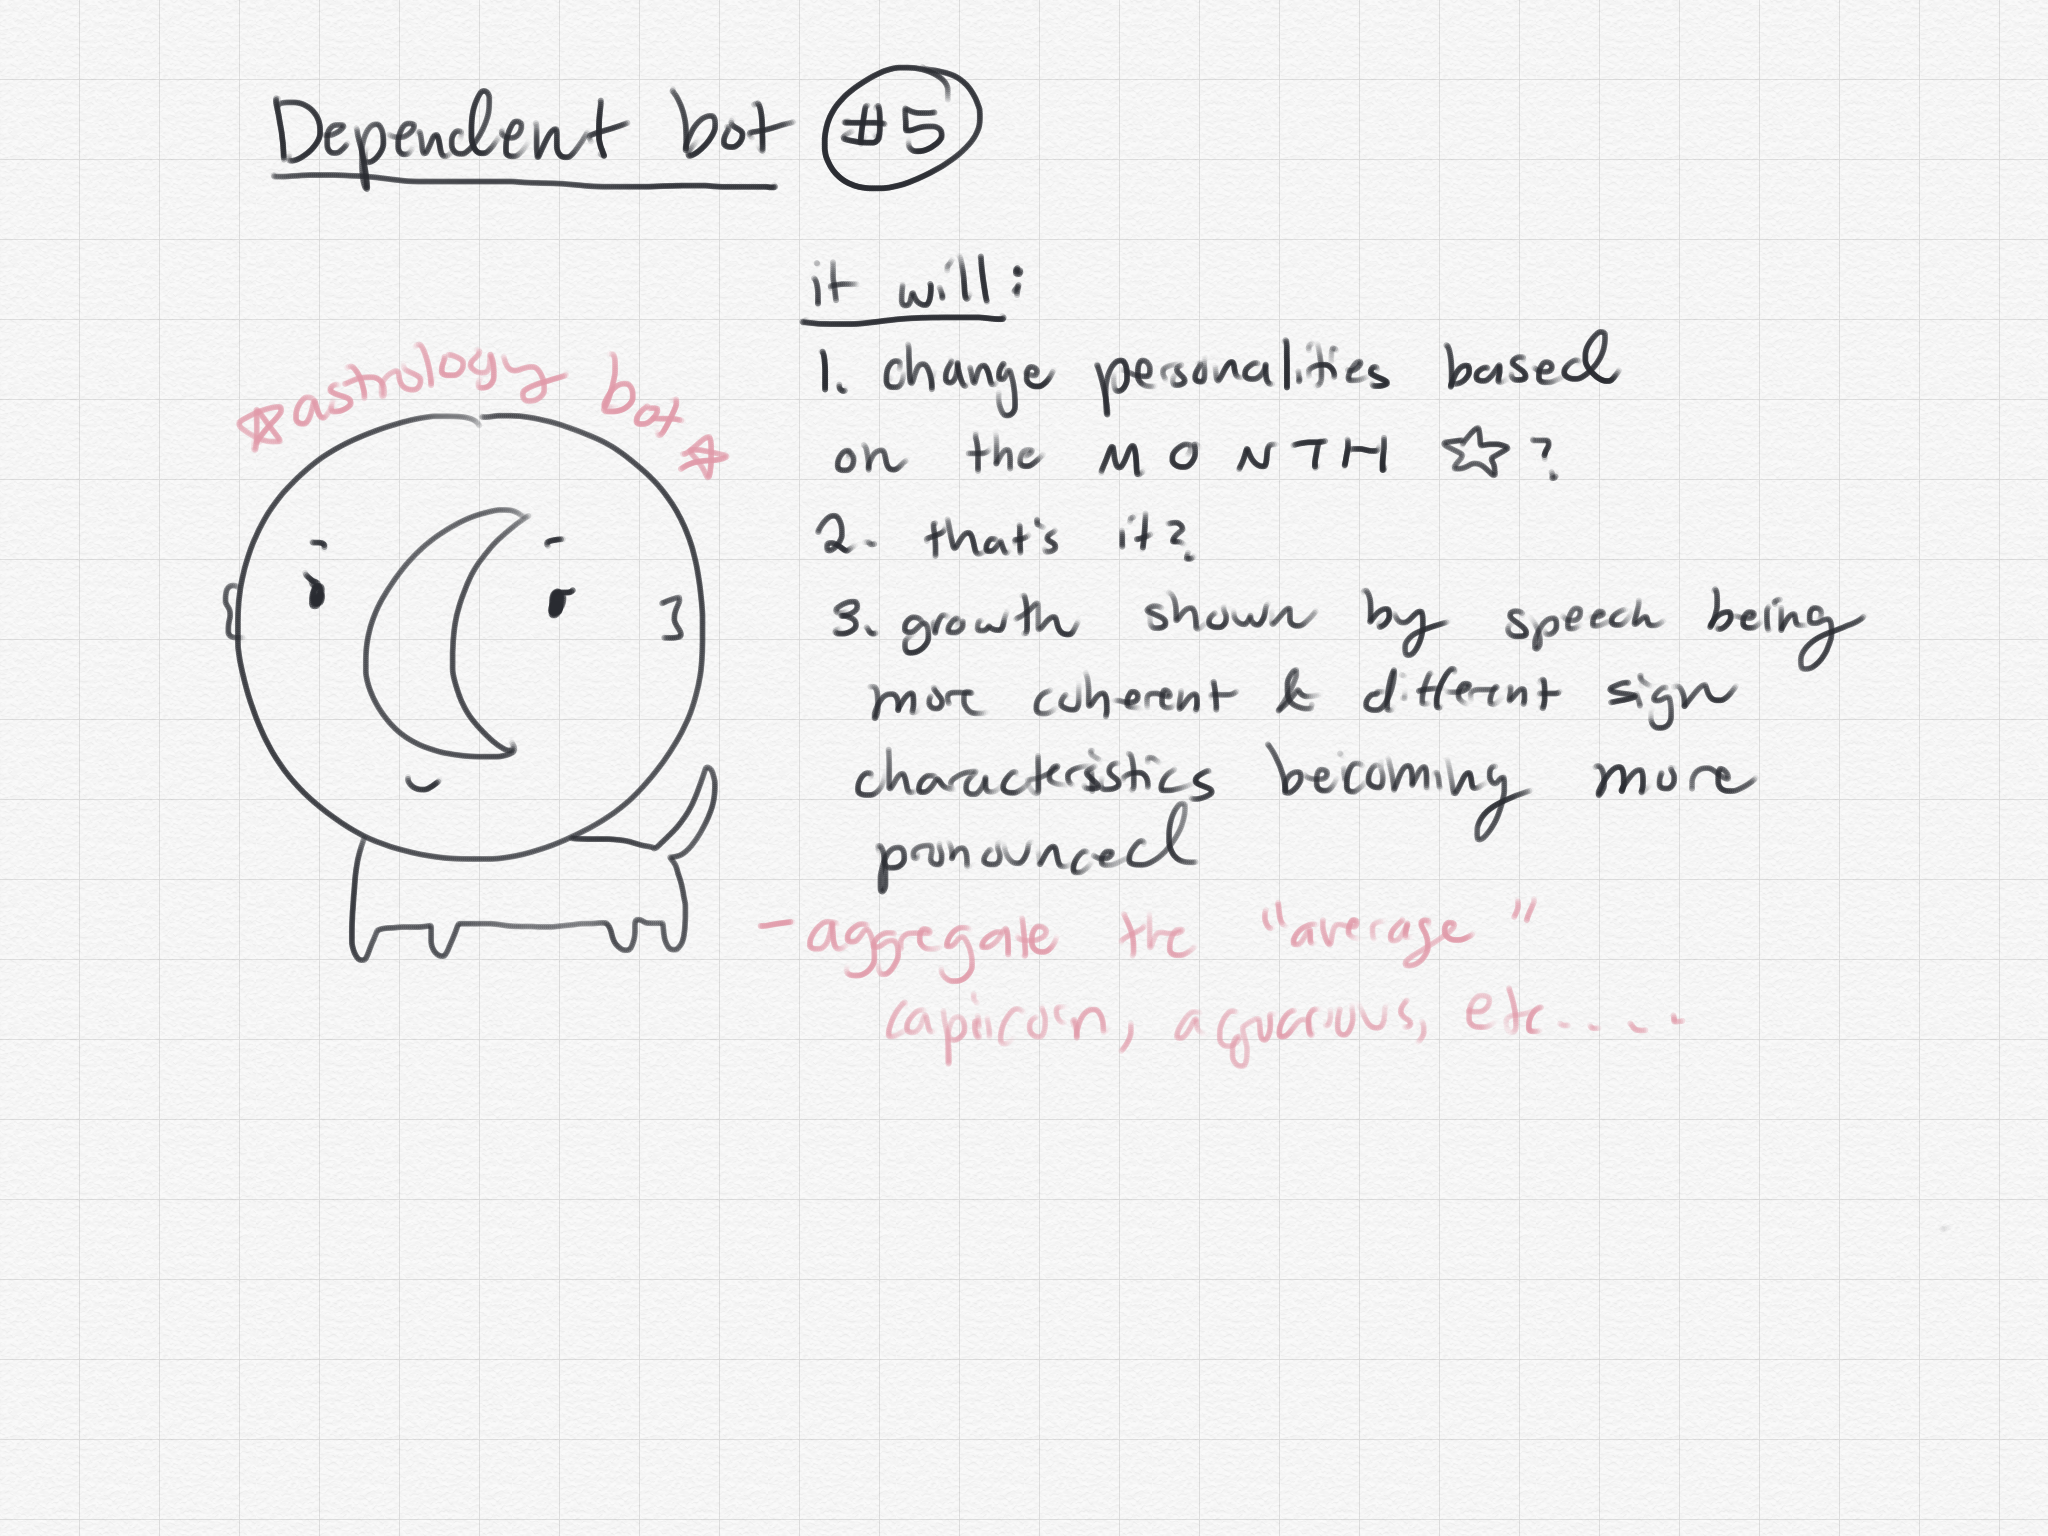 Dependent bot #5
it will:
☆astrology bot☆
1. change personalities based
on the MONTH ☆?
2. that's it?
3. growth shown by speech being
more coherent & different sign
characterisstics becoming more
pronounced
- aggregate the "average"
capricorn, aquarius, etc.....